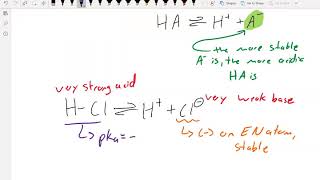 HA ⇌ H⁺ + A⁻
the more stable
A⁻ is, the more acidic
HA is
very strong acid
H-Cl ⇌ H⁺ + Cl⊖
very weak base
↳ pKa = -
↳ (-) on EN atom,
stable